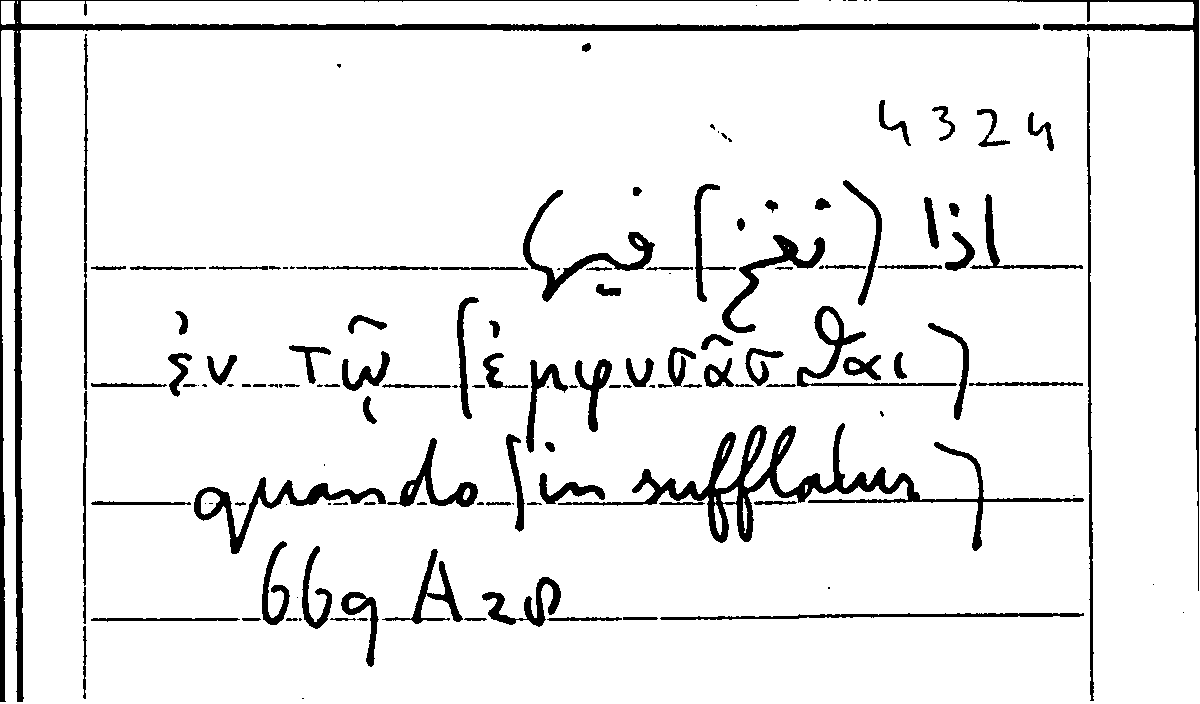 4324
اذا (نفخ] فيها)
ἐν τῷ [ἐμφυσᾶσθαι)
quando [insufflatur)
669 A 28